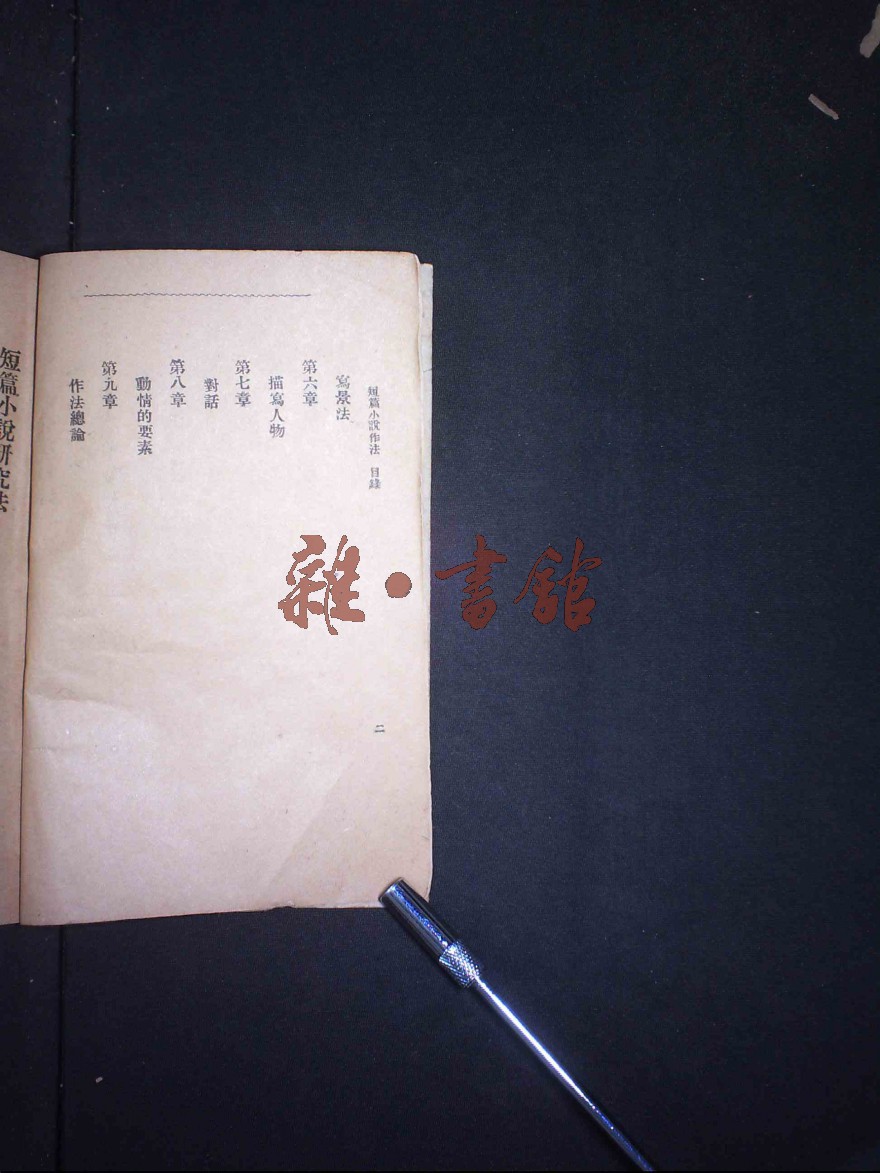 短篇小說作法　目錄
寫景法
第六章
描寫人物
第七章
對話
第八章
動情的要素
第九章
作法總論
二
短篇小說研究法
雜・書館